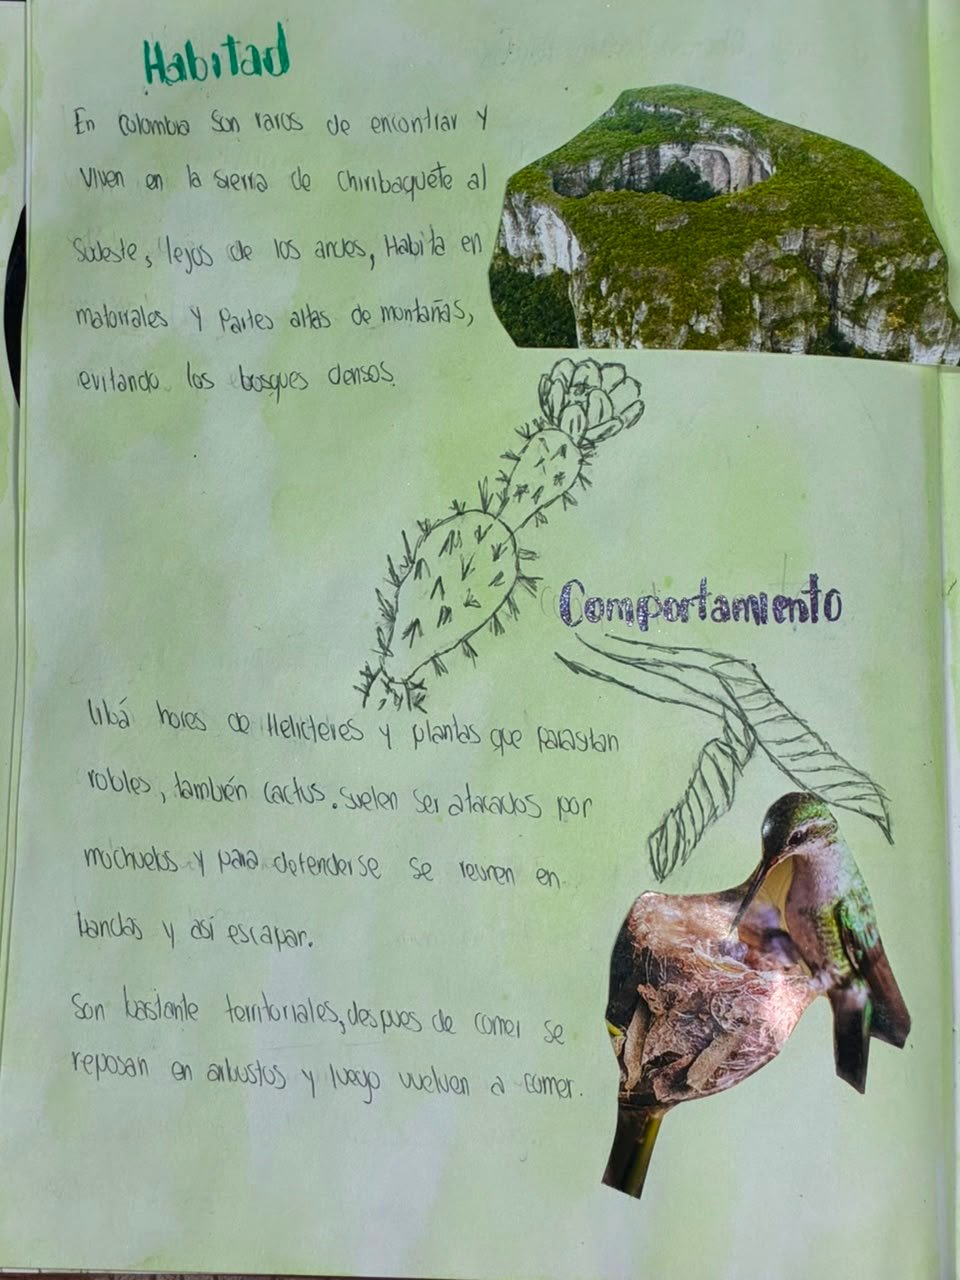 Habitad
En Colombia son raros de encontrar y
viven en la sierra de chiribaquete al
sudeste, lejos de los andes, Habita en
matorrales y partes altas de montañas,
evitando los bosques densos.
Comportamiento
Libá flores de Helicteres y plantas que parasitan
robles, también cactus. suelen ser atacados por
mochuelos y para defenderse se reunen en
bandas y así escapar.
Son bastante territoriales, despues de comer se
reposan en arbustos y luego vuelven a comer.